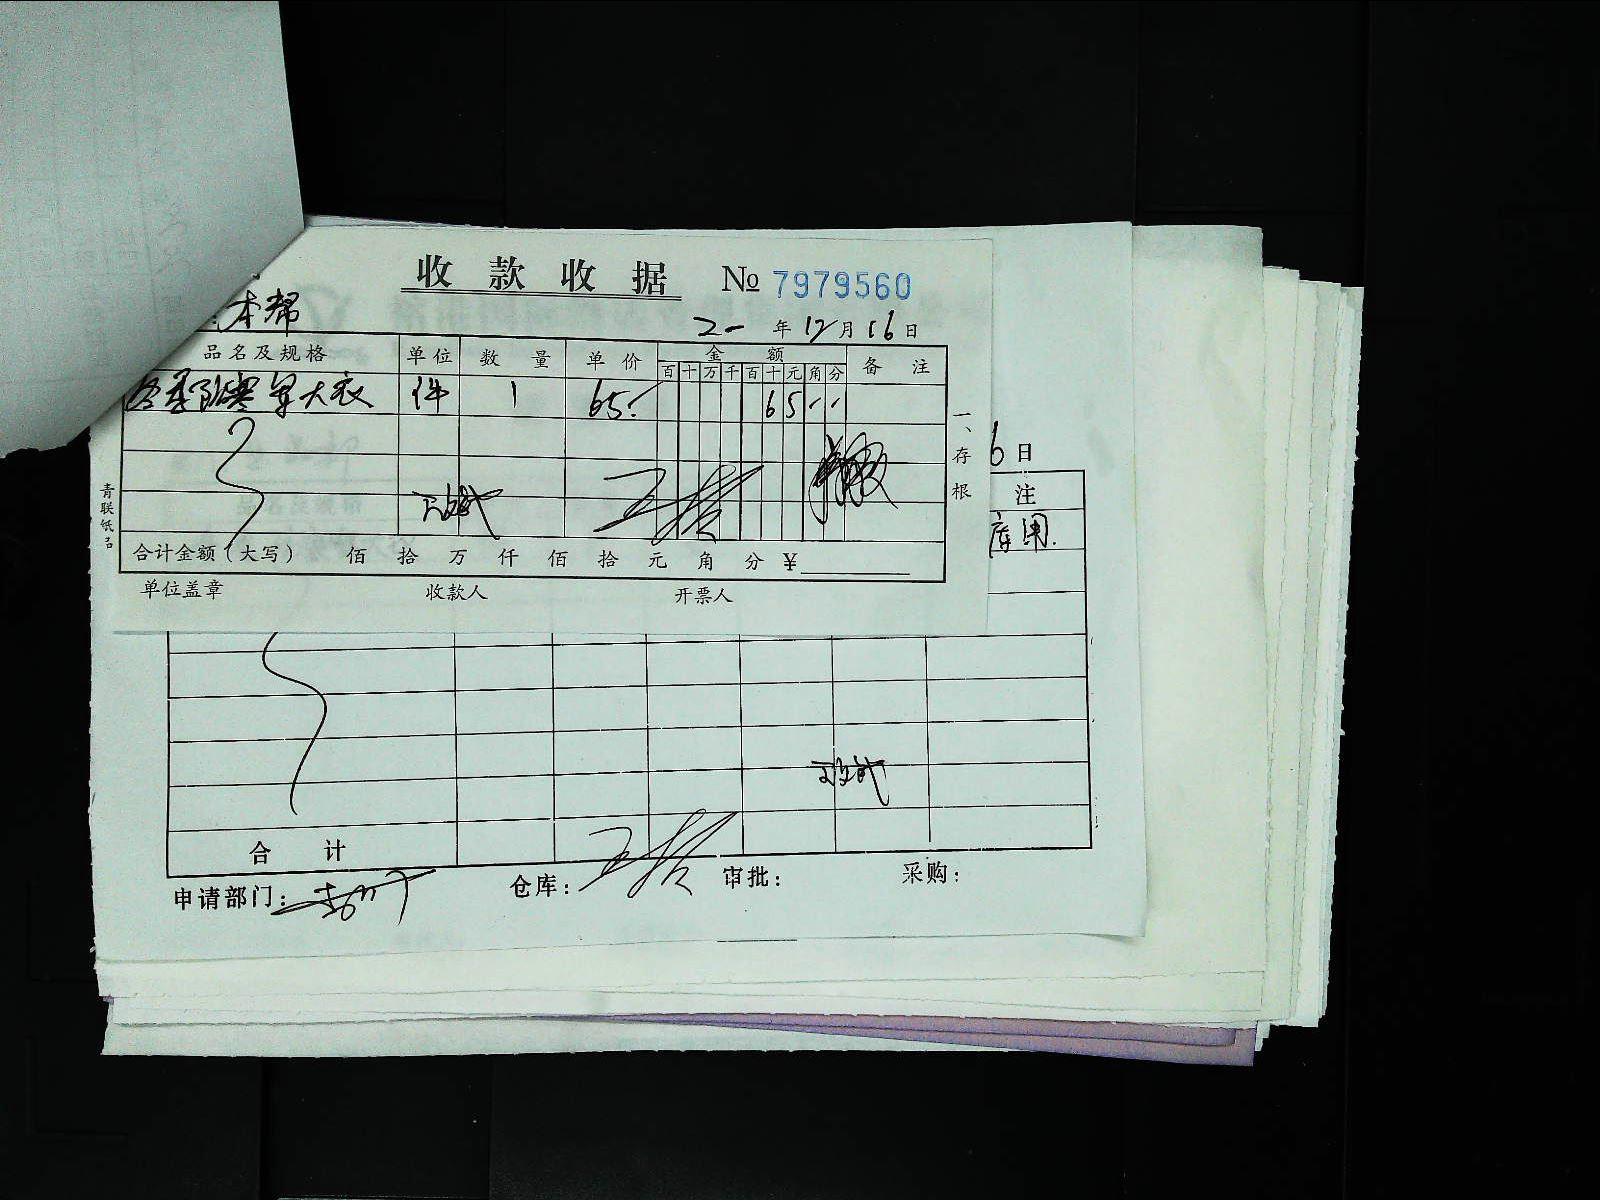 收款收据 № 7979560
本帮
2- 年 12 月 16 日
品名及规格 单位 数量 单价 金额 备注
百 十 万 千 百 十 元 角 分
冬季防寒军大衣 件 1 65.- 6 5 - -
一、存根
青联纸品
合计金额（大写） 佰 拾 万 仟 佰 拾 元 角 分 ¥
单位盖章 收款人 开票人
6日
注
库用.
合计
申请部门： 仓库： 审批： 采购：